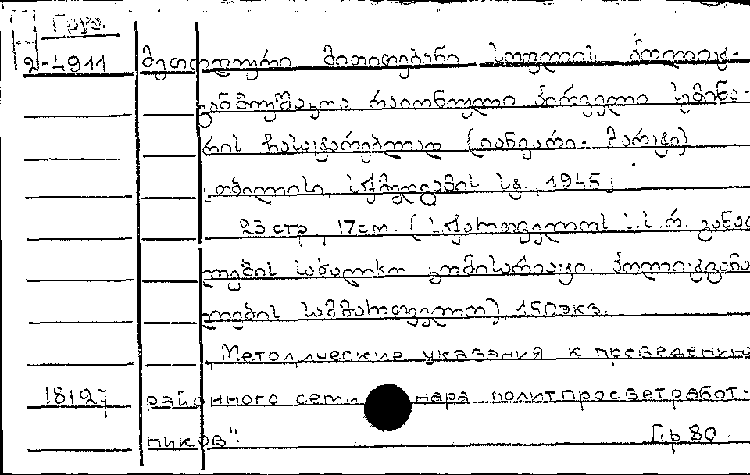 Груз.
2-4911 მეთოდური მითითებანი სოფლის პოლიტ-
განმუშაკთა რაიონული პირველი სემინა-
რის ჩასატარებლად (იანვარი- მარტი)
თბილისი, სტ. 1945;
23 стр., 17см. (საქართველოს ს.ს.რ. განათ
ლების სახალხო კომისარიატი. პოლიტგანა
ლების სამმართველო) 150экз.
"Методические указания к проведению
18127 районного семинара политпросветработ-
ников".
Гр 80